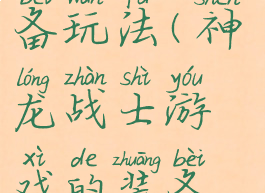 bèi wán fǎ shén
备玩法(神
lóng zhàn shì yóu
龙战士游
xì de zhuāng bèi
戏的装备